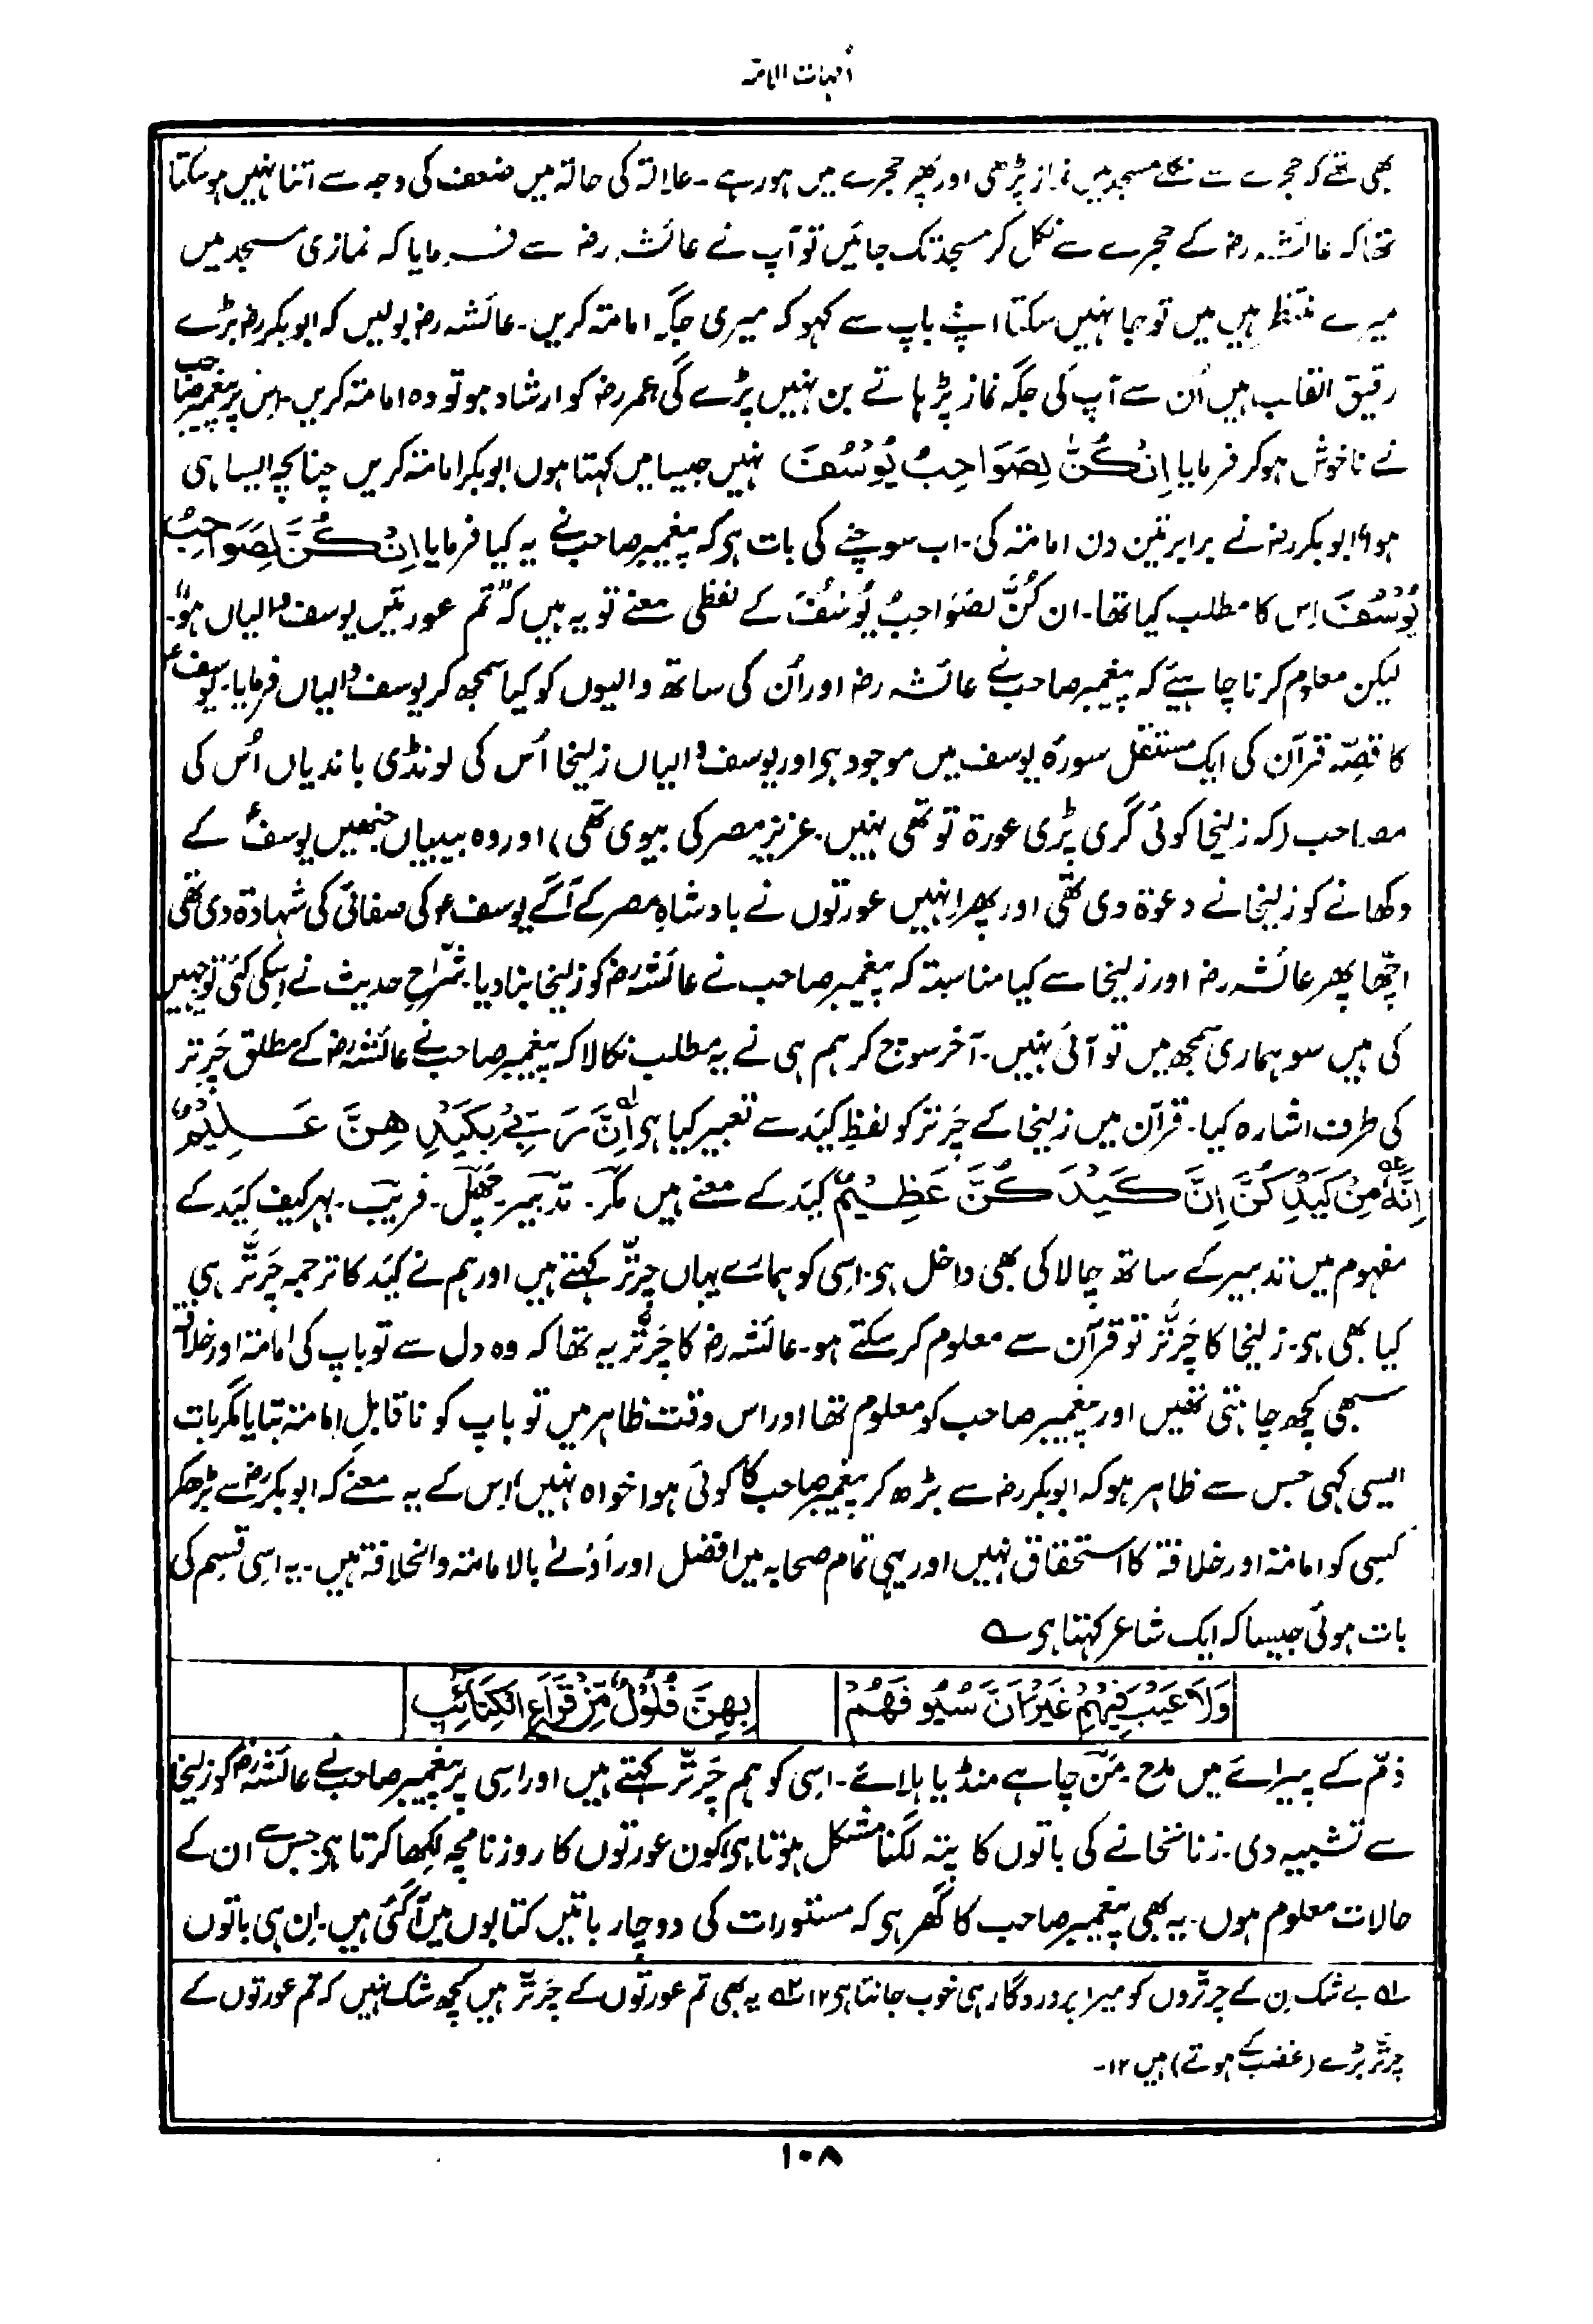 اُمہات الامۃ
بھی تھے کہ حجرے سے نکلے مسجد میں نماز پڑھی اور پھر حجرے میں ہو رہے۔ علالۃ کی حالۃ میں ضعف کی وجہ سے اتنا نہیں ہو سکتا
تھا کہ عائشہ رضہ کے حجرے سے نکل کر مسجد تک جائیں تو آپ نے عائشہ رضہ سے فرمایا کہ نمازی مسجد میں
میرے منتظر ہیں میں تو جا نہیں سکتا اپنے باپ سے کہو کہ میری جگہ امامۃ کریں۔ عائشہ رضہ بولیں کہ ابوبکر رضہ بڑے
رقیق القلب ہیں اُن سے آپ کی جگہ نماز پڑہاتے بن نہیں پڑے گی عمر رضہ کو ارشاد ہو تو وہ امامۃ کریں۔ اِس پر پیغمبر صاحب
نے ناخوش ہو کر فرمایا اِنْکُنَّ لِصَوَاحِبُ یُوْسُفَ نہیں جیسا میں کہتا ہوں ابوبکر امامۃ کریں چنانچہ ایسا ہی
ہوا ابوبکر رضہ نے برابر تین دن امامۃ کی۔ اب سوچنے کی بات ہی کہ پیغمبر صاحب نے یہ کیا فرمایا اِنْ کُنَّ لِصَوَاحِبُ
یُوْسُفَ اِس کا مطلب کیا تھا۔ ان کُنَّ لصَوَاحِبُ یُوْسُفَ کے لفظی معنے تو یہ ہیں کہ "تم عورتیں یوسف والیاں ہو"۔
لیکن معلوم کرنا چاہیئے کہ پیغمبر صاحب نے عائشہ رضہ اور اُن کی ساتھ والیوں کو کیا سمجھ کر یوسف والیاں فرمایا۔ یوسف ع
کا قصّہ قرآن کی ایک مستقل سورۃ یوسف میں موجود ہی اور یوسف والیاں زلیخا اُس کی لونڈی باندیاں اُس کی
مصاحب (کہ زلیخا کوئی گری پڑی عورۃ تو تھی نہیں۔ عزیز مصر کی بیوی تھی) اور وہ بیبیاں جنھیں یوسفؑ کے
دکھانے کو زلیخا نے دعوۃ دی تھی اور پھر اِنہیں عورتوں نے بادشاہِ مصر کے آگے یوسف ع کی صفائی کی شہادۃ دی تھی
اچّھا پھر عائشہ رضہ اور زلیخا سے کیا مناسبۃ کہ پیغمبر صاحب نے عائشہ رضہ کو زلیخا بنا دیا۔ شُرّاحِ حدیث نے اِسکی کئی توجیہیں
کی ہیں سو ہماری سمجھ میں تو آئی نہیں۔ آخر سوچ کر ہم ہی نے یہ مطلب نکالا کہ پیغمبر صاحب نے عائشہ رضہ کے مطلق چَرِتّر
کی طرف اشارہ کیا۔ قرآن میں زلیخا کے چَرِتّر کو لفظِ کَیْد سے تعبیر کیا ہی اِنَّ رَبِّیْ بِکَیْدِ ھِنَّ عَــلِیْمٌ
اِنَّہٗ مِنْ کَیْدِ کُنَّ اِنَّ کَیْدَ کُنَّ عَظِیْمٌ کَیْد کے معنے ہیں مکر۔ تدبیر۔ چھل۔ فریب۔ بہر کیف کَیْد کے
مفہوم میں تدبیر کے ساتھ چالاکی بھی داخل ہی۔ اِسی کو ہمارے یہاں چَرِتّر کہتے ہیں اور ہم نے کَیْد کا ترجمہ چَرِتّر ہی
کیا بھی ہی۔ زلیخا کا چَرِتّر تو قرآن سے معلوم کر سکتے ہو۔ عائشہ رضہ کا چَرِتّر یہ تھا کہ وہ دل سے تو باپ کی امامۃ اور خلافۃ
سبھی کچھ چاہتی تھیں اور پیغمبر صاحب کو معلوم تھا اور اس وقت ظاہر میں تو باپ کو ناقابلِ امامۃ بتایا مگر بات
ایسی کہی جس سے ظاہر ہو کہ ابوبکر رضہ سے بڑھ کر پیغمبر صاحب کا کوئی ہوا خواہ نہیں، اِس کے یہ معنے کہ ابوبکر رضہ سے بڑھکر
کسی کو امامۃ اور خلافۃ کا استحقاق نہیں اور یہی تمام صحابہ میں افضل اور اَوْلٰے بالامامۃ والخلافۃ ہیں۔ یہ اِسی قسم کی
بات ہوئی جیسا کہ ایک شاعر کہتا ہی ؎
وَلَا عَیْبَ فِیْھِمْ غَیْرَ اَنَّ سُیُوْفَھُمْ بِھِنَّ فُلُوْلٌ مِّنْ قِرَاعِ الْکَتَائِبِ
ذمّ کے پیرائے میں مدح۔ مَن چاہے منڈیا ہلائے۔ اِسی کو ہم چَرِتّر کہتے ہیں اور اسی پر پیغمبر صاحب نے عائشہ رضہ کو زلیخا
سے تشبیہ دی۔ زنانخانے کی باتوں کا پتہ لگنا مشکل ہوتا ہی، کون عورتوں کا روزنامچہ لکھا کرتا ہی جس سے ان کے
حالات معلوم ہوں۔ یہ بھی پیغمبر صاحب کا گھر ہی کہ مستورات کی دو چار باتیں کتابوں میں آ گئی ہیں۔ اِن ہی باتوں
لہ بے شک اِن کے چرتّروں کو میرا پروردگار ہی خوب جانتا ہی ۱۲ ۲ہ یہ بھی تم عورتوں کے چَرِتّر ہیں کچھ شک نہیں کہ تم عورتوں کے
چرتّر بڑے (غضب کے ہوتے) ہیں ۱۲۔
۱۰۸